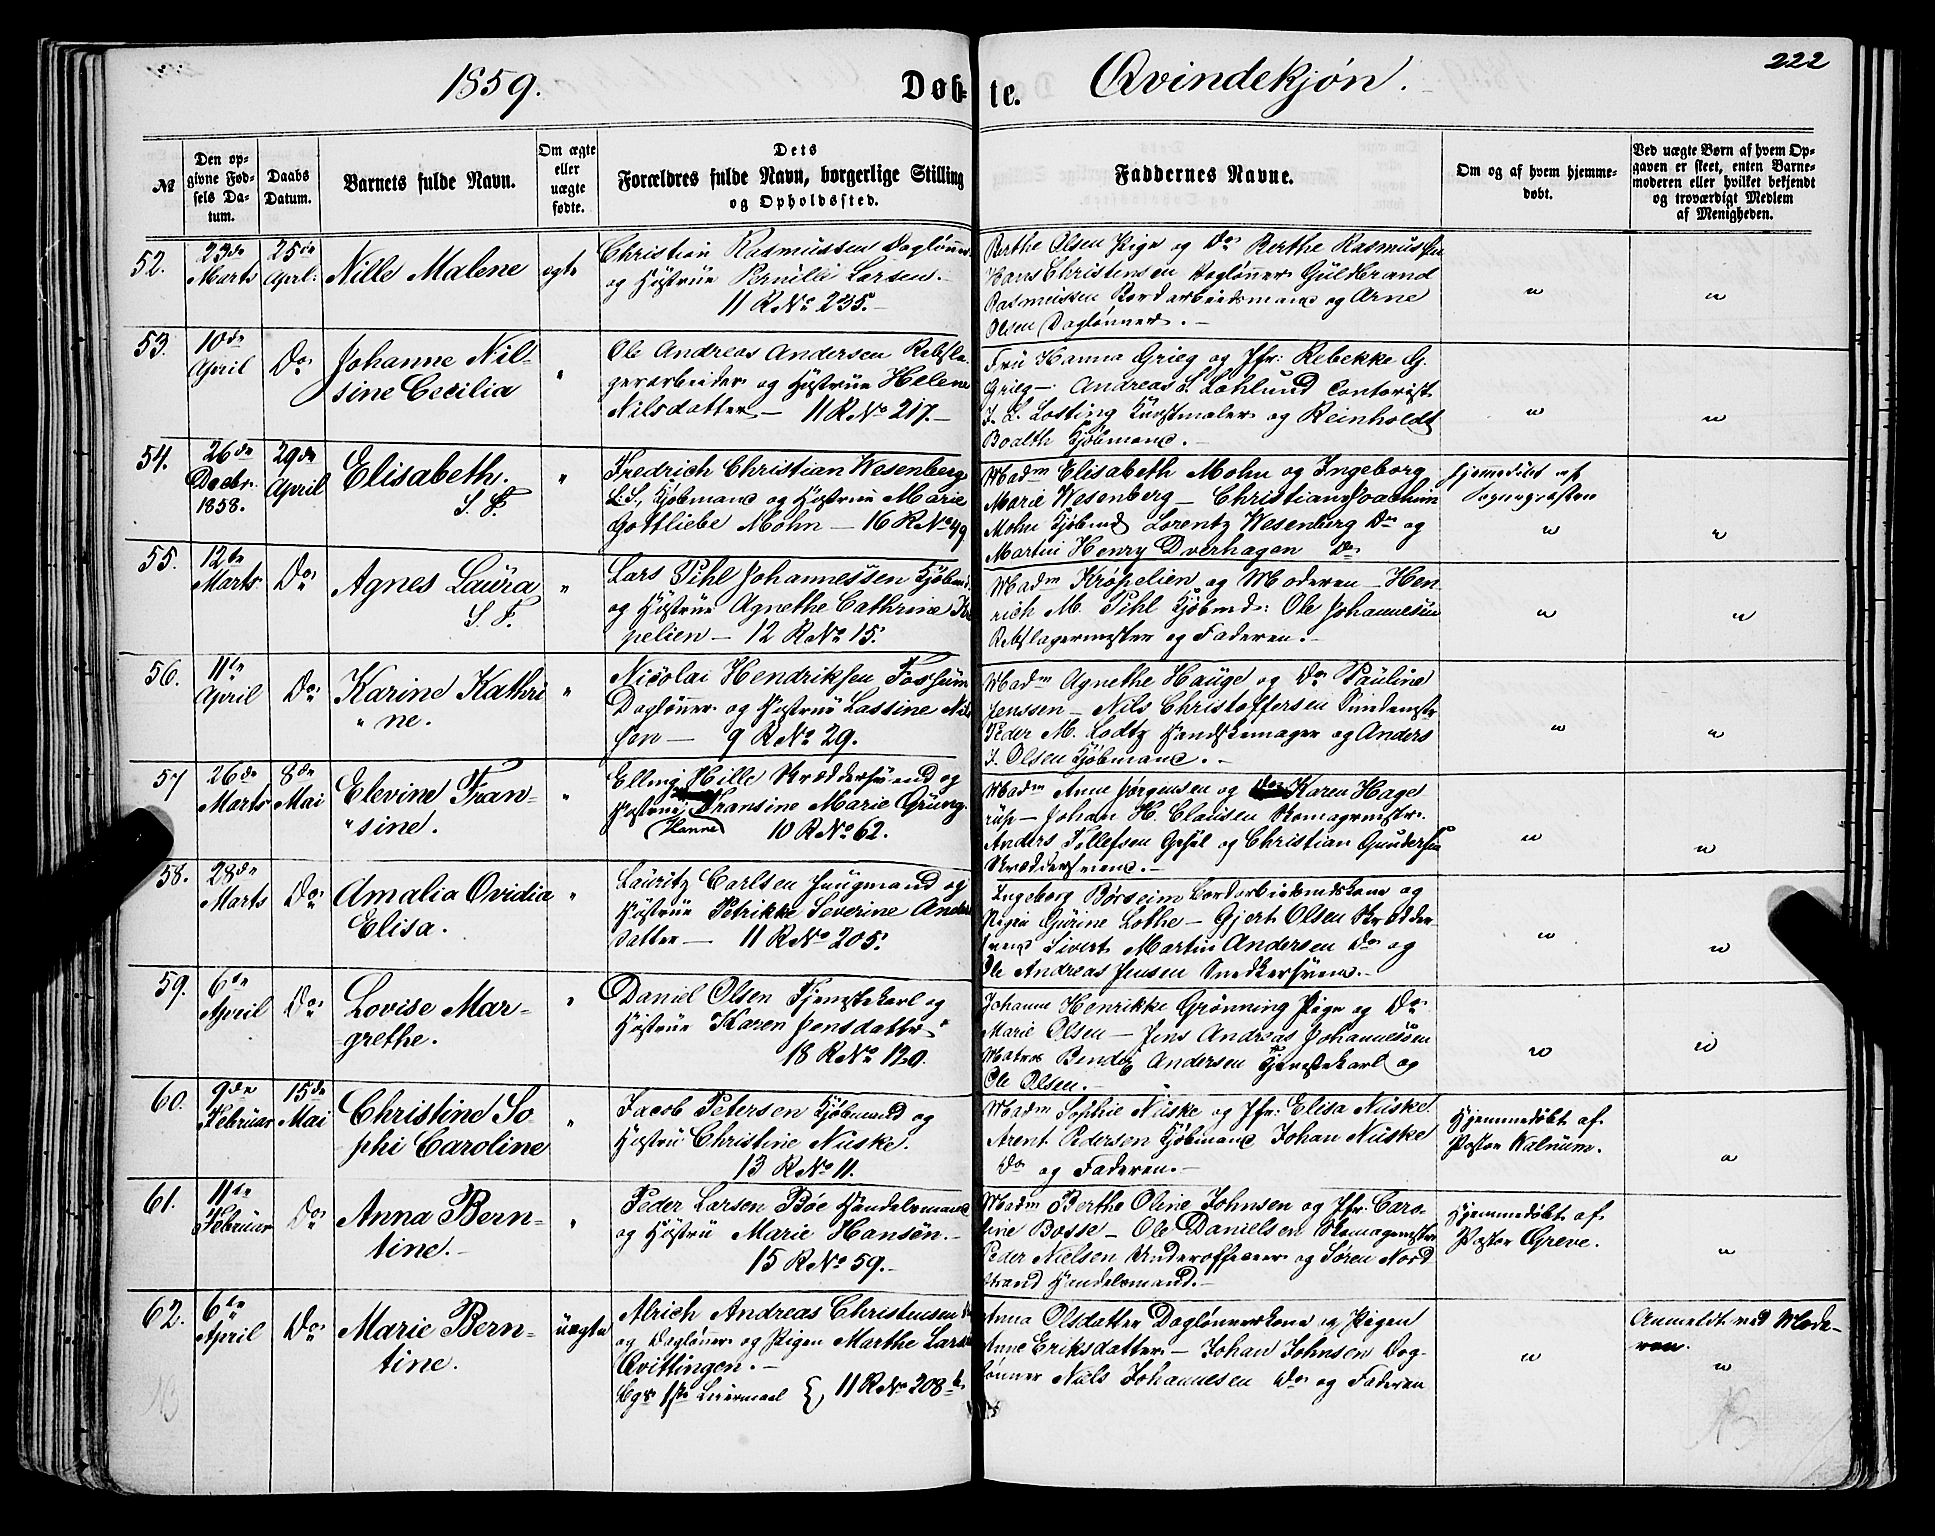 1859.
Døb- te.
Qvindekjøn.
222
№
Den op-
givne Fød-
sels Da-
tum.
Daabs
Datum.
Barnets fulde Navn.
Om ægte
eller
uægte
fødte.
Dets
Forældres fulde Navn, borgerlige Stilling
og Opholdssted.
Faddernes Navne.
Om og af hvem hjemme-
døbt.
Ved uægte Børn af hvem Op-
gaven er skeet, enten Barne-
moderen eller hvilket bekjendt
og troværdigt Medlem
af Menigheden.
52.
23de
Marts
25de
April.
Nille Malene
ægte
Christian Rasmussen Daglønner
og Hustrue Pernille Larsen.
11 R. No 235.
Berthe Olsen Pige og Do Berthe Rasmussen
Hans Christensen Dagløner Guldbrand
Rasmussen Bordarbeidsmand og Arne
Olsen Dagløner.
53.
10de
April
Do
Johanne Nil-
sine Cecilia
"
Ole Andreas Andersen Rebsla-
gerarbeider og Hustrue Helene
Nilsdatter 11 R No 217.
Fru Hanna Grieg og Jfr: Rebekke G.
Grieg Andreas L. Lohlund Contorist
J. L. Losting Kunstmaler og Reinholdt
Boalth Kjøbmand.
54.
26de
Decbr.
1858.
29de
April
Elisabeth.
S. F.
"
Fredrich Christian Wesenberg
L.S. Kjøbmand og Hustrue Marie
Gottliebe Mohn 16 R No 49
Madm Elisabeth Mohn og Ingeborg
Marie Wesenberg Christian Joachim
Mohn Kjøbmd Lorentz Wesenberg Do og
Martin Henry Dverhagen Do
Hjemmedøbt af
Sognepræsten
55.
12te
Marts
Do
Agnes Laura
S. F.
"
Lars Pihl Johannessen Kjøbmd.
og Hustrue Agnethe Cathrine Krø
pelien 12 R No 15.
Madm Krøpelien og Moderen Hen
rich M. Pihl Kjøbmd: Ole Johannesen
Rebslagermester og Faderen.
56.
11te
April
Do
Karine Kathri
" ne.
"
Nicolai Hendriksen Fossum
Dagløner og Hustrue Lassine Nil
sen 9 R No 29.
Madm Agnethe Hauge og Do Pauline
Jenssen Nils Christoffersen
Peder M. Lodtz Handskemager og Anders
J. Olsen Kjøbmand.
57
26de
Marts
8de
Mai
Elevine Fran-
" sine.
"
Elling Hille Skræddersvend og
Hustrue Fransine Marie Grung.
(Hanne) 10 R No 62.
Madm Anne Jørgensen og Karen Hage
rup Johan H. Clausen Skomagermstr.
Anders Tollefsen og Christian Gundersen
Skræddersvend.
58.
28de
Marts
Do
Amalia Ovidia
Elisa.
"
Lauritz Carlsen Jungmand og
Hustrue Petrikke Severine Anders
datter 11 R No 205.
Ingeborg Børseim Bordarbeidsmdskone og
Pigen Gurine Lothe Gjert Olsen Skrædder
svend Sivert Martin Andersen Do og
Ole Andreas Jensen Snedkersvend.
59.
6te
April
Do
Lovise Mar-
grethe.
"
Daniel Olsen Tjenestekarl og
Hustrue Karen Jensdatter.
18 R No 120.
Johanne Henrikke Grønning Pige og Do
Marie Olsen Jens Andreas Johannessen
Matros Bendix Andersen Tjenestekarl og
Ole Olsen.
60.
9de
Februar
15de
Mai
Christine So
phi Caroline
"
Jacob Petersen Kjøbmand og
Hustru Christine Nuske.
13 R No 11.
Madm Sophie Nuske og Jfr: Elisa Nuske
Arent Pedersen Kjøbmand Johan Nuske
Do og Faderen.
Hjemmedøbt af
Pastor Walnum.
61.
11te
Februar
Do
Anna Bern-
tine.
"
Peder Larsen Bøe Handelsmand
og Hustru Marie Hansen.
15 R No 59.
Madm Berthe Oline Johnsen og Jfr: Caro
line Bosse Ole Danielsen Skomagermstr
Peder Nielsen Underofficeer og Søren Nord
strand Handelsmand.
Hjemmedøbt af
Pastor Greve.
62.
6te
April
Do
Marie Bern-
tine.
uægte
Alrich Andreas Christensen
og Dagløner og Pigen Marthe Larsd
Qvittingen.
Begs 1ste Leiermaal } 11 R No 208 b.
Anna Olsdatter Daglønerskone og Pigen
Anne Eriksdatter Johan Johnsen Dag-
lønner Niels Johannesen Do og Faderen
Anmeldt ved Mode-
ren.